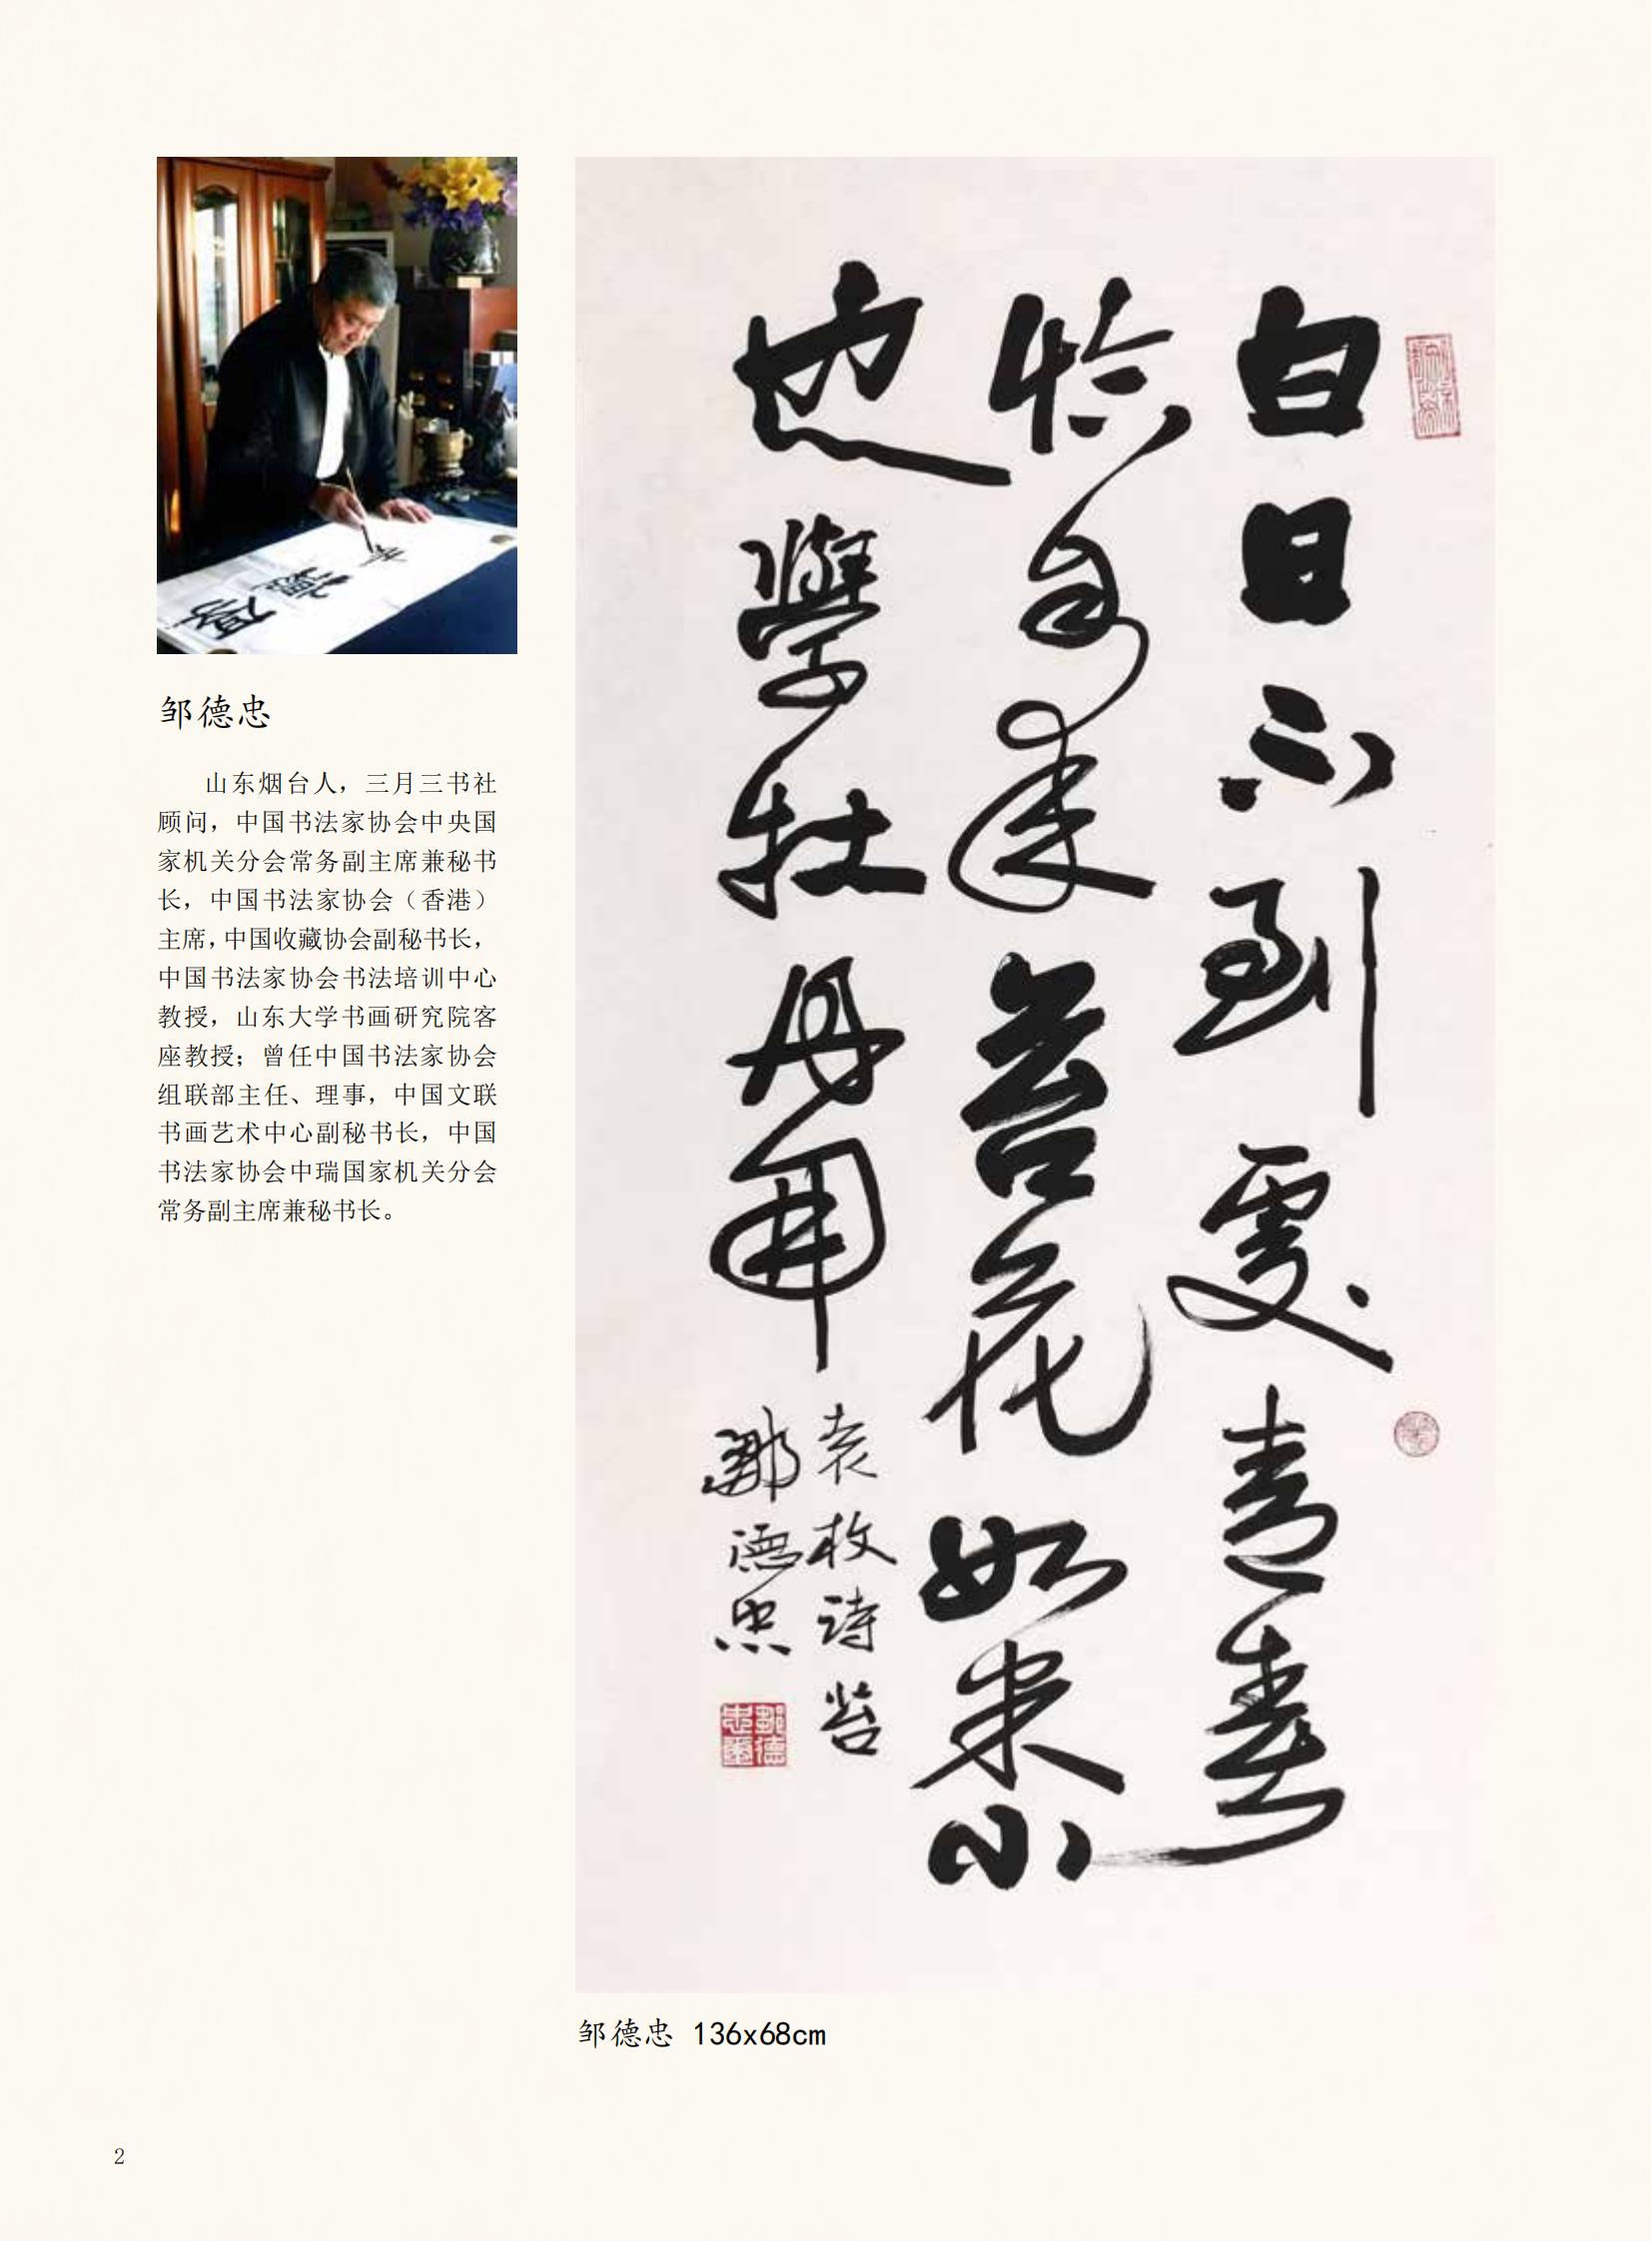 邹德忠
山东烟台人，三月三书社
顾问，中国书法家协会中央国
家机关分会常务副主席兼秘书
长，中国书法家协会（香港）
主席，中国收藏协会副秘书长，
中国书法家协会书法培训中心
教授，山东大学书画研究院客
座教授；曾任中国书法家协会
组联部主任、理事，中国文联
书画艺术中心副秘书长，中国
书法家协会中瑞国家机关分会
常务副主席兼秘书长。
白日不到處青春
恰自来苔花如米小
也學牡丹開
袁枚诗苔
鄒德忠
邹德忠 136x68cm
2